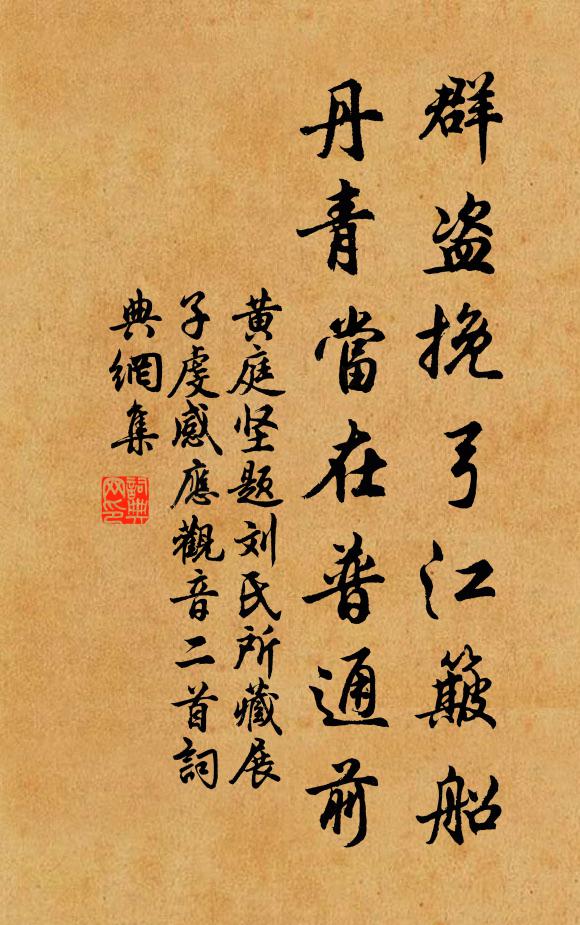 群盗挽弓江簸船
丹青當在普通前
黄庭坚题刘氏所藏展
子虔感應觀音二首詞
典網集
詞典
网印